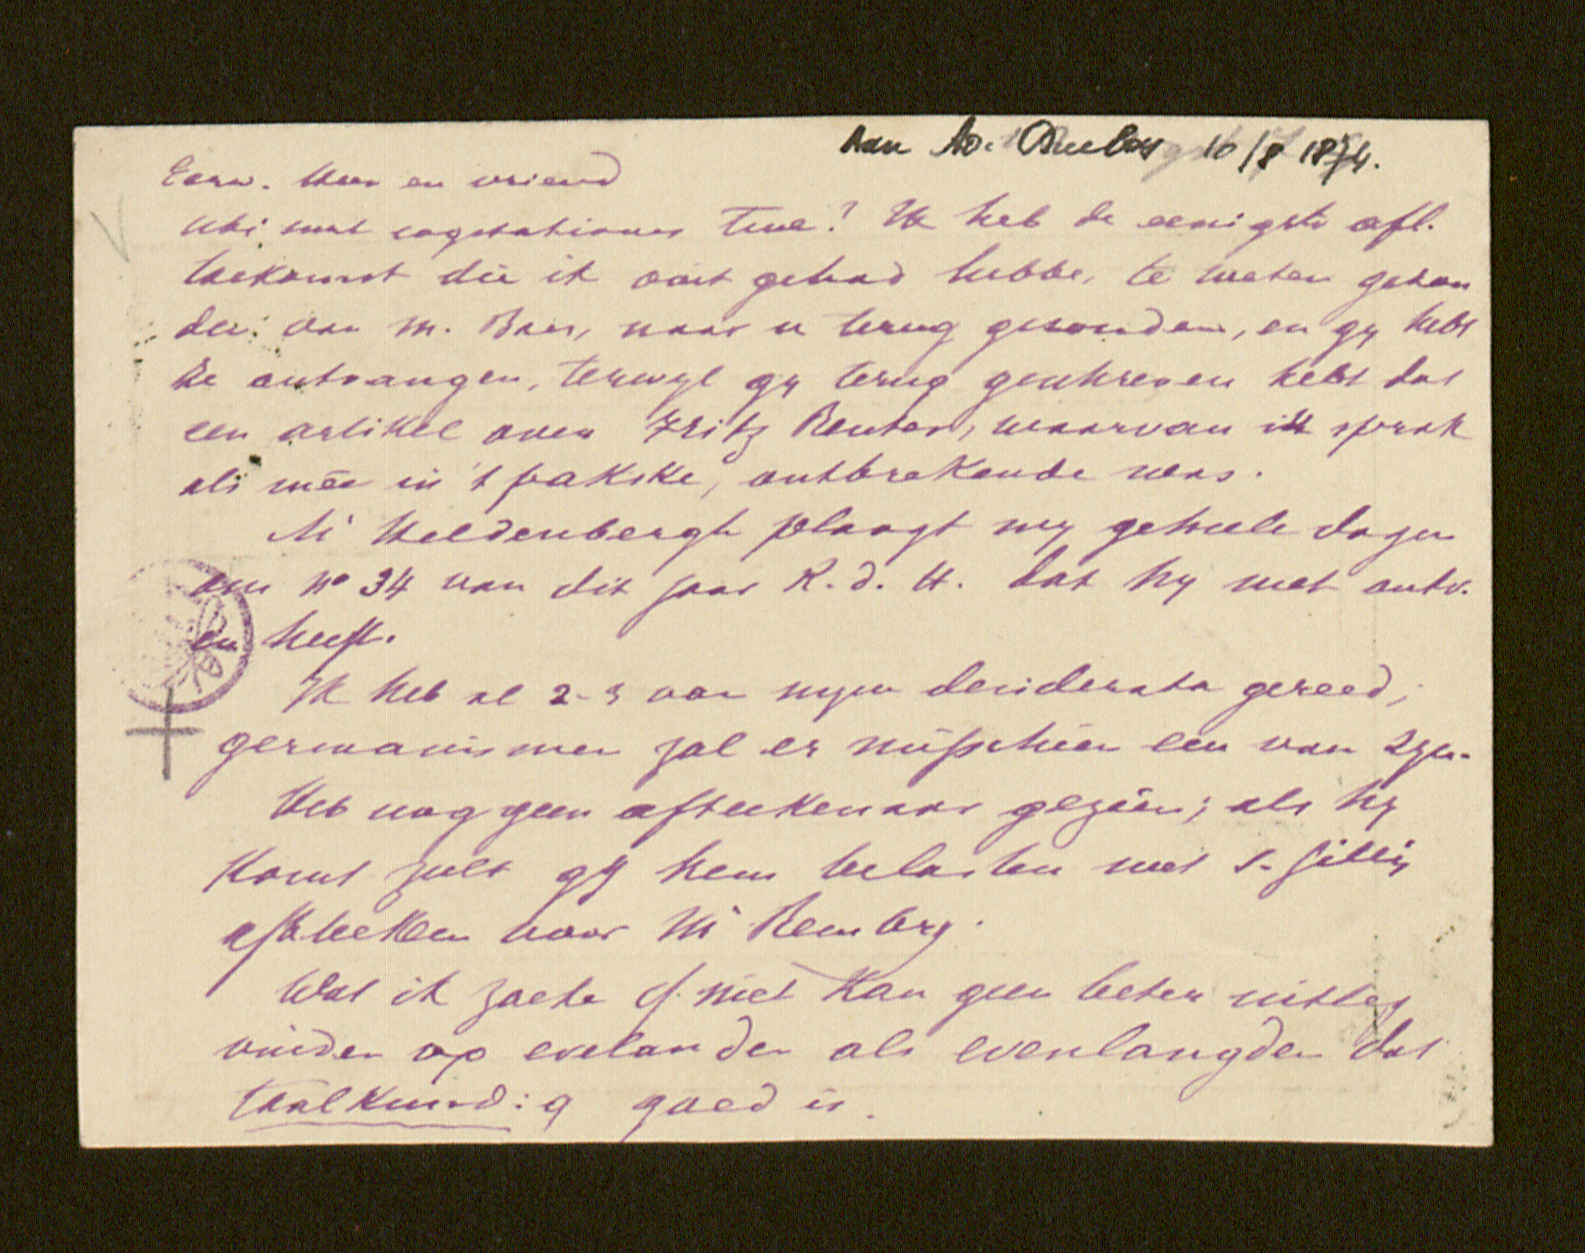 Aan Ad. Duclos 16/8 1874.
Eerw. Heer en vriend
ubi sunt cogitationes Tuae? Ik heb de eenigste afl.
toekomst die ik ooit gehad hebbe, te weten
der: van M. naar u terug gesonden, en gy hebt
ze ontvangen, terwyl gy terug geschreven hebt dat
een artikel over Fritz Reuter, waarvan ik sprak
als mêe in 't pakske, ontbrekende was.
Mr Heldenbergh plaagt my geheele dagen
om No 34 van dit jaar R. d. H. dat hy niet ontv.
en heeft.
Ik heb al 2-3 van myn desiderata gereed;
germanismen zal er misschien een van zyn.
Heb nog geen afteekenaar gezien; als hy
komt zult gy hem belasten met S. Jillis
afteekken voor Mr Rembry.
Wat ik zoeke of niet kan geen beter uitleg
vinden op evelanden als evenlangden dat
taalkundig goed is.